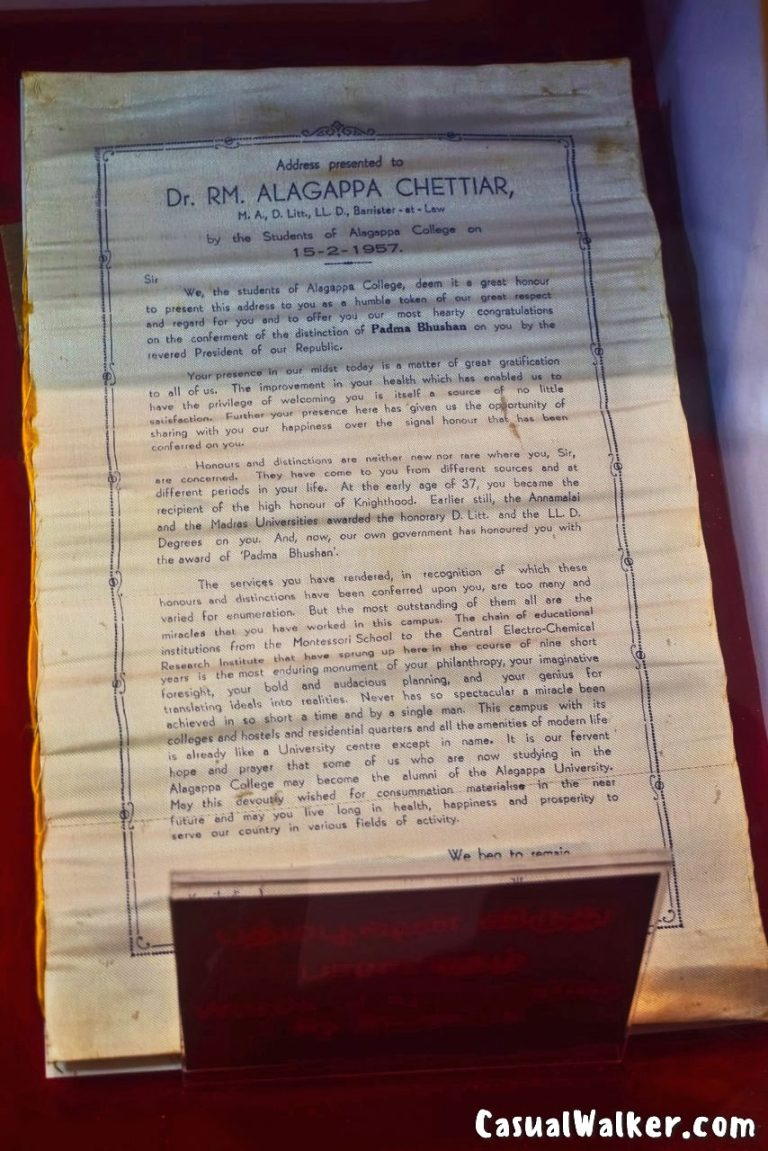 Address presented to
Dr. RM. ALAGAPPA CHETTIAR,
M. A., D. Litt., LL. D., Barrister - at - Law
by the Students of Alagappa College on
15-2-1957.
Sir
We, the students of Alagappa College, deem it a great honour
to present this address to you as a humble token of our great respect
and regard for you and to offer you our most hearty congratulations
on the conferment of the distinction of Padma Bhushan on you by the
revered President of our Republic.
Your presence in our midst today is a matter of great gratification
to all of us. The improvement in your health which has enabled us to
have the privilege of welcoming you is itself a source of no little
satisfaction. Further your presence here has given us the opportunity of
sharing with you our happiness over the signal honour that has been
conferred on you.
Honours and distinctions are neither new nor rare where you, Sir,
are concerned. They have come to you from different sources and at
different periods in your life. At the early age of 37, you became the
recipient of the high honour of Knighthood. Earlier still, the Annamalai
and the Madras Universities awarded the honorary D. Litt. and the LL. D.
Degrees on you. And, now, our own government has honoured you with
the award of 'Padma Bhushan'.
The services you have rendered, in recognition of which these
honours and distinctions have been conferred upon you, are too many and
varied for enumeration. But the most outstanding of them all are the
miracles that you have worked in this campus. The chain of educational
institutions from the Montessori School to the Central Electro-Chemical
Research Institute that have sprung up here in the course of nine short
years is the most enduring monument of your philanthropy, your imaginative
foresight, your bold and audacious planning, and your genius for
translating ideals into realities. Never has so spectacular a miracle been
achieved in so short a time and by a single man. This campus with its
colleges and hostels and residential quarters and all the amenities of modern life
is already like a University centre except in name. It is our fervent
hope and prayer that some of us who are now studying in the
Alagappa College may become the alumni of the Alagappa University.
May this devoutly wished for consummation materialise in the near
future and may you live long in health, happiness and prosperity to
serve our country in various fields of activity.
We beg to remain
CasualWalker.com